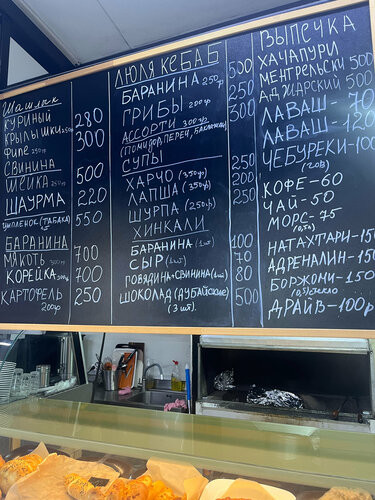 Шашлык
Куриный
Крылышки 250гр 280
Филе 250гр 300
Свинина
Шейка 250гр 500
Шаурма 220
Цыпленок (табака) 550
Баранина
Мякоть 700
Корейка 300гр 700
Картофель 250
200гр
Люля кебаб
Баранина 250гр 500
Грибы 200гр 250
Ассорти 300гр 500
(помидор, перец, баклажан)
Супы
Харчо (350гр) 250
Лапша (350гр) 200
Шурпа (250гр) 250
Хинкали
Баранина (1шт) 100
Сыр (1шт) 70
Говядина+свинина (1 80
Шоколад (дубайские) 500
(3 шт.)
Выпечка
Хачапури
Менгрельски 500
Аджарский 500
Лаваш - 70
Лаваш - 120
Чебуреки - 100
Кофе - 60
Чай - 50
Морс - 75
(0,5)
Натахтари - 150
Адреналин - 150
Боржоми - 150
(0,5) стекло
Драйв - 100р